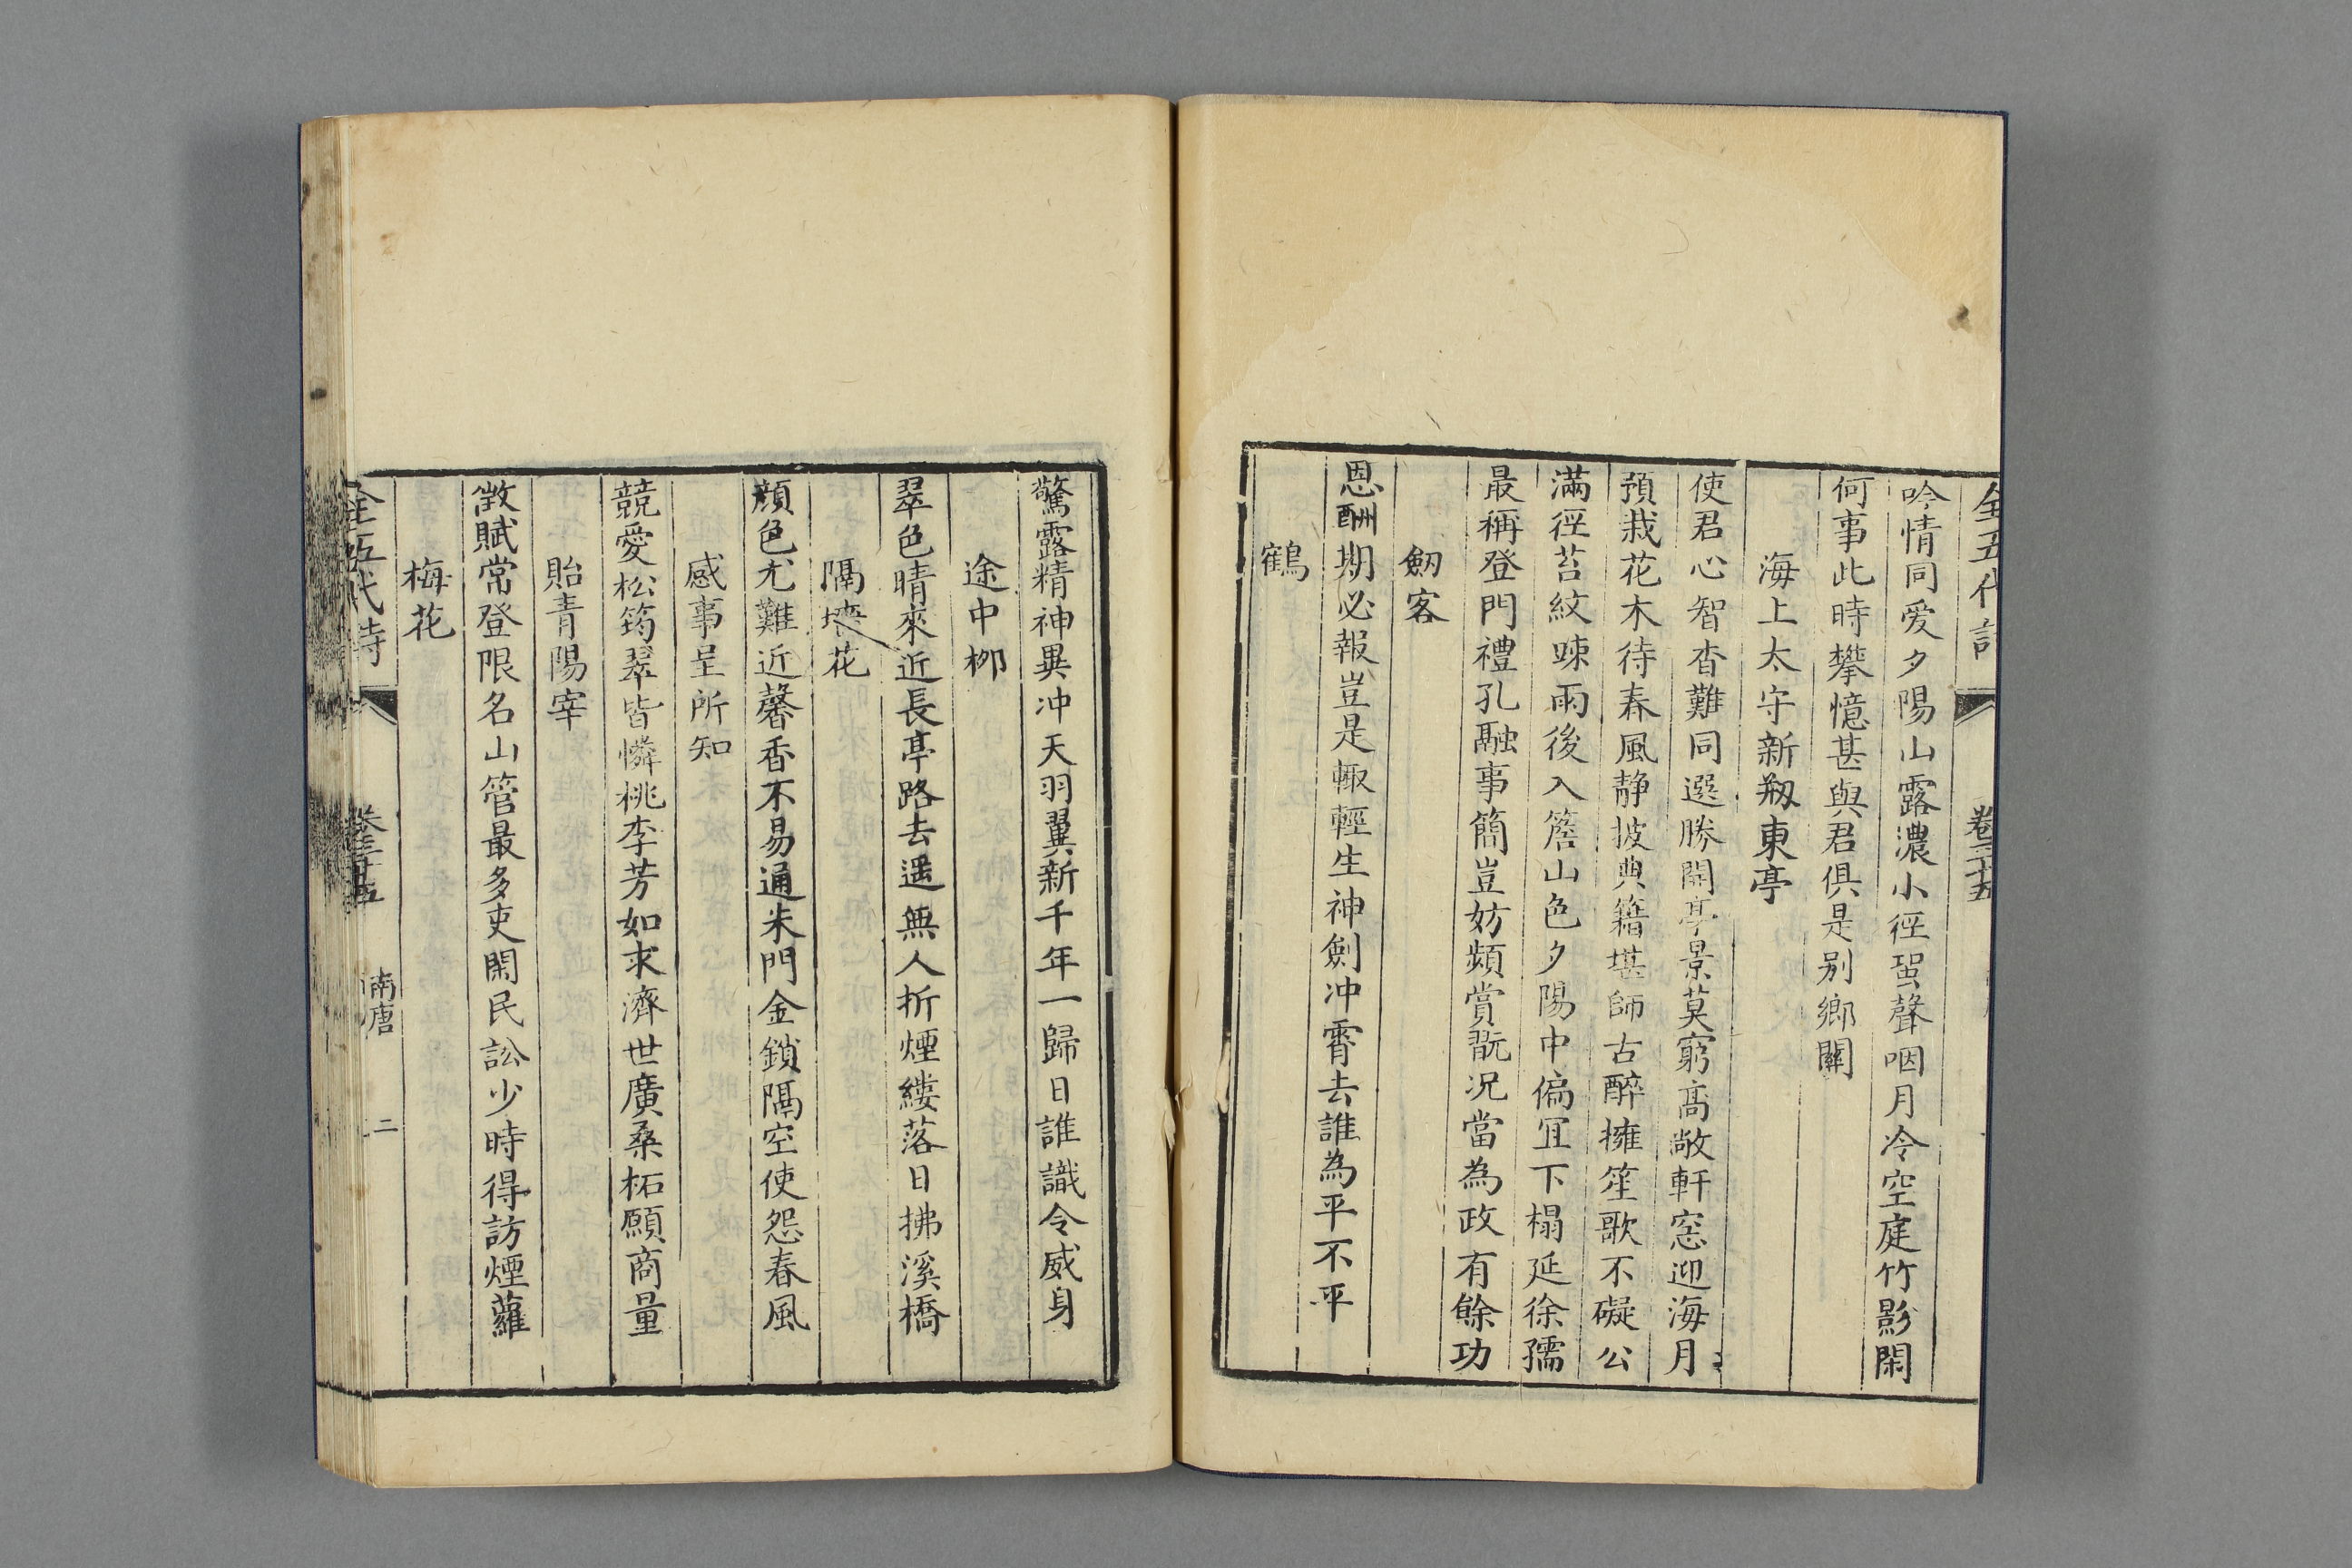 全五代詩 卷三十五
吟情同爱夕陽山露濃小徑蛩聲咽月冷空庭竹影閑
何事此時攀憶甚與君俱是别鄉關
海上太守新剏東亭
使君心智杳難同選勝開亭景莫窮高敞軒窓迎海月
預栽花木待春風静披典籍堪師古醉擁笙歌不礙公
滿徑苔紋踈雨後入簷山色夕陽中偏冝下榻延徐孺
最稱登門禮孔融事簡豈妨頻賞翫况當為政有餘功
劒客
恩酬期必報豈是輙輕生神劍冲霄去誰為平不平
鶴
驚露精神異冲天羽翼新千年一歸日誰識令威身
途中栁
翠色晴來近長亭路去遥無人折煙縷落日拂溪橋
隔墻花
顏色尤難近馨香不易通朱門金鎖隔空使怨春風
感事呈所知
競愛松筠翠皆憐桃李芳如求濟世廣桑柘願商量
貽青陽宰
徴賦常登限名山管最多吏閑民訟少時得訪煙蘿
梅花
全五代詩 卷三十五 南唐 二